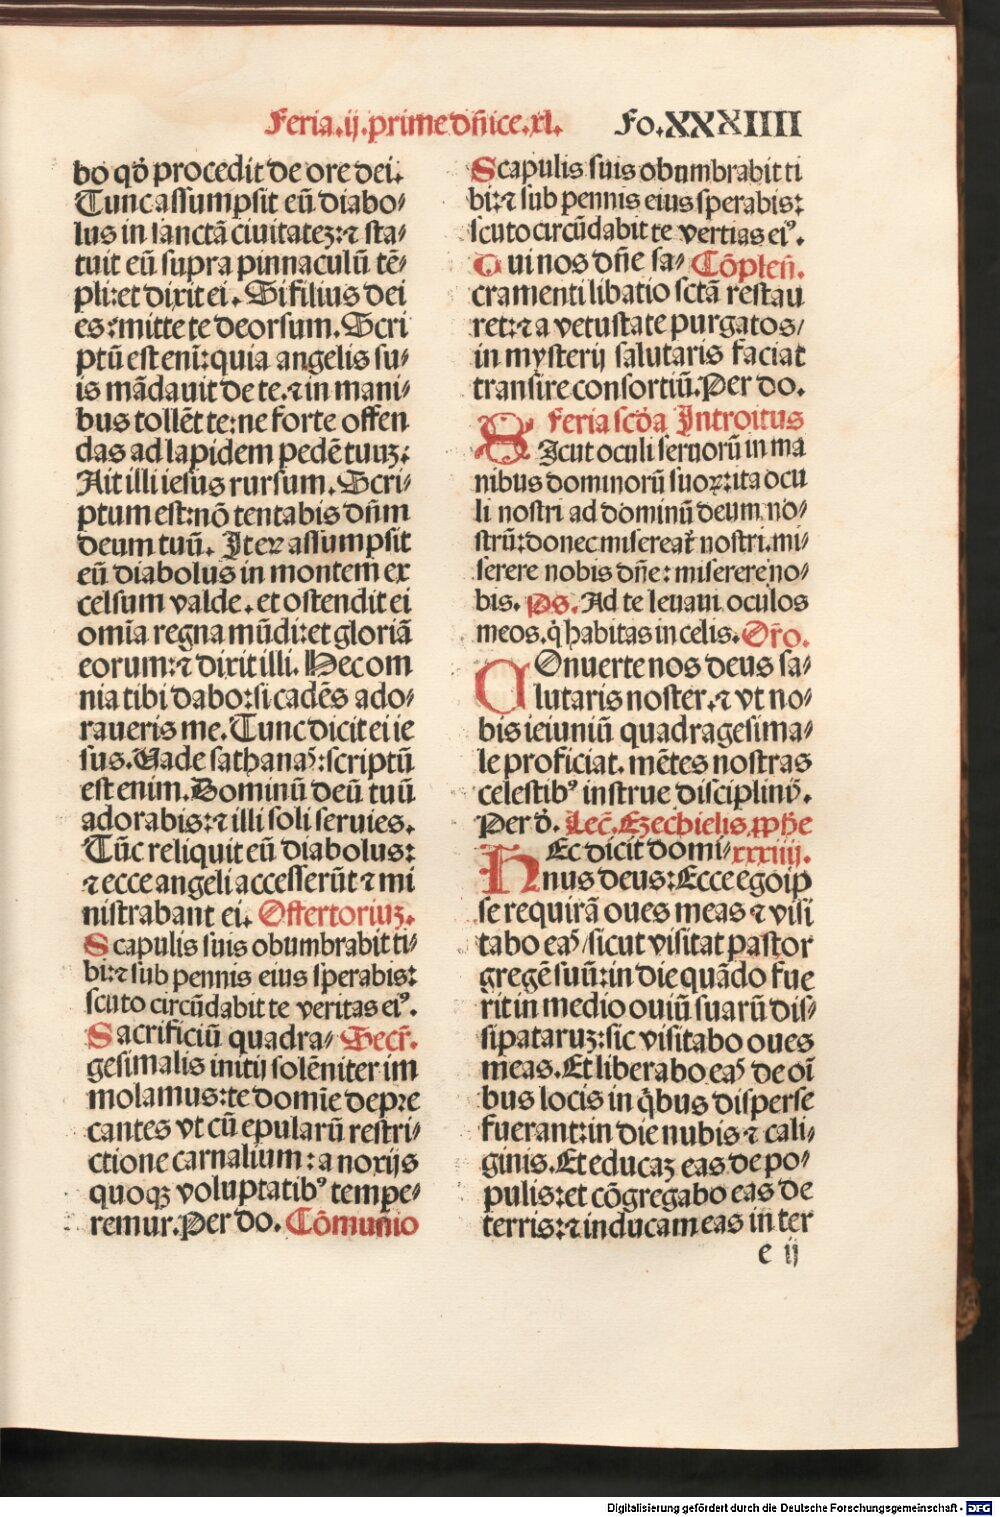 Feria.ij.prime dn̄ice.xl. Fo.XXXIIII
bo qď procedit de ore dei.
Tunc assumpsit eū diabo⸗
lus in sanctā ciuitatez:⁊ sta⸗
tuit eū supra pinnaculū tē⸗
pli:et dixit ei. Si filius dei
es:mitte te deorsum. Scri
ptū est enī:quia angelis su⸗
is mādauit de te.⁊ in mani⸗
bus tollēt te:ne forte offen
das ad lapidem pedē tuuz:
Ait illi iesus rursum. Scri⸗
ptum est:nō tentabis dn̄m
deum tuū. Iteꝝ assumpsit
eū diabolus in montem ex
celsum valde. et ostendit ei
omīa regna mūdi:et gloriā
eorum:⁊ dixit illi. Hec om
nia tibi dabo:si cadēs ado⸗
raueris me. Tunc dicit ei ie
sus. Uade sathanaˢ:scriptū
est enim. Dominū deū tuū
adorabis:⁊ illi soli seruies.
Tūc reliquit eū diabolus:
⁊ ecce angeli accesserūt ⁊ mi
nistrabant ei. Offertoriuz.
Scapulis suis obumbrabit ti⸗
bi:⁊ sub pennis eius sperabis:
scuto circūdabit te veritas eiꝰ.
Sacrificiū quadra⸗ Secr̄.
gesimalis initij solēniter im
molamus:te domīe depre
cantes vt cū epularū restri⸗
ctione carnalium: a noxijs
quoqꝫ voluptatibꝰ tempe⸗
remur. Per do. Cōmunio
Scapulis suis obumbrabit ti
bi:⁊ sub pennis eius sperabis:
scuto circūdabit te vertias eiꝰ.
Tui nos dn̄e sa⸗ Cōplen̄.
cramenti libatio sctā restau
ret:⁊ a vetustate purgatos/
in mysterij salutaris faciat
transire consortiū. Per do.
Feria scďa Introitus
SIcut oculi seruorū in ma
nibus dominorū suoꝝ:ita ocu
li nostri ad dominū deum no⸗
strū:donec misereat̄ nostri.mi⸗
serere nobis dn̄e: miserere no⸗
bis. Ps. Ad te leuaui oculos
meos.q̇ habitas in celis. Or̄o.
COnuerte nos deus sa⸗
lutaris noster.⁊ vt no⸗
bis ieiuniū quadragesima⸗
le proficiat. mētes nostras
celestibꝰ instrue disciplinꝭ.
Per ď. Lec̄. Ezechielis ꝓph̄e
HEc dicit domi⸗ xxxiiij.
nus deus: Ecce ego ip
se requirā oues meas ⁊ visi
tabo eaˢ/sicut visitat pastor
gregē suū:in die quādo fue
rit in medio ouiū suarū dis⸗
sipataruz:sic visitabo oues
meas. Et liberabo eaˢ de oī
bus locis in q̇bus disperse
fuerant:in die nubis ⁊ cali⸗
ginis. Et educaz eas de po⸗
pulis:et cōgregabo eas de
terris:⁊ inducam eas in ter
e ij
Digitalisierung gefördert durch die Deutsche Forschungsgemeinschaft - DFG